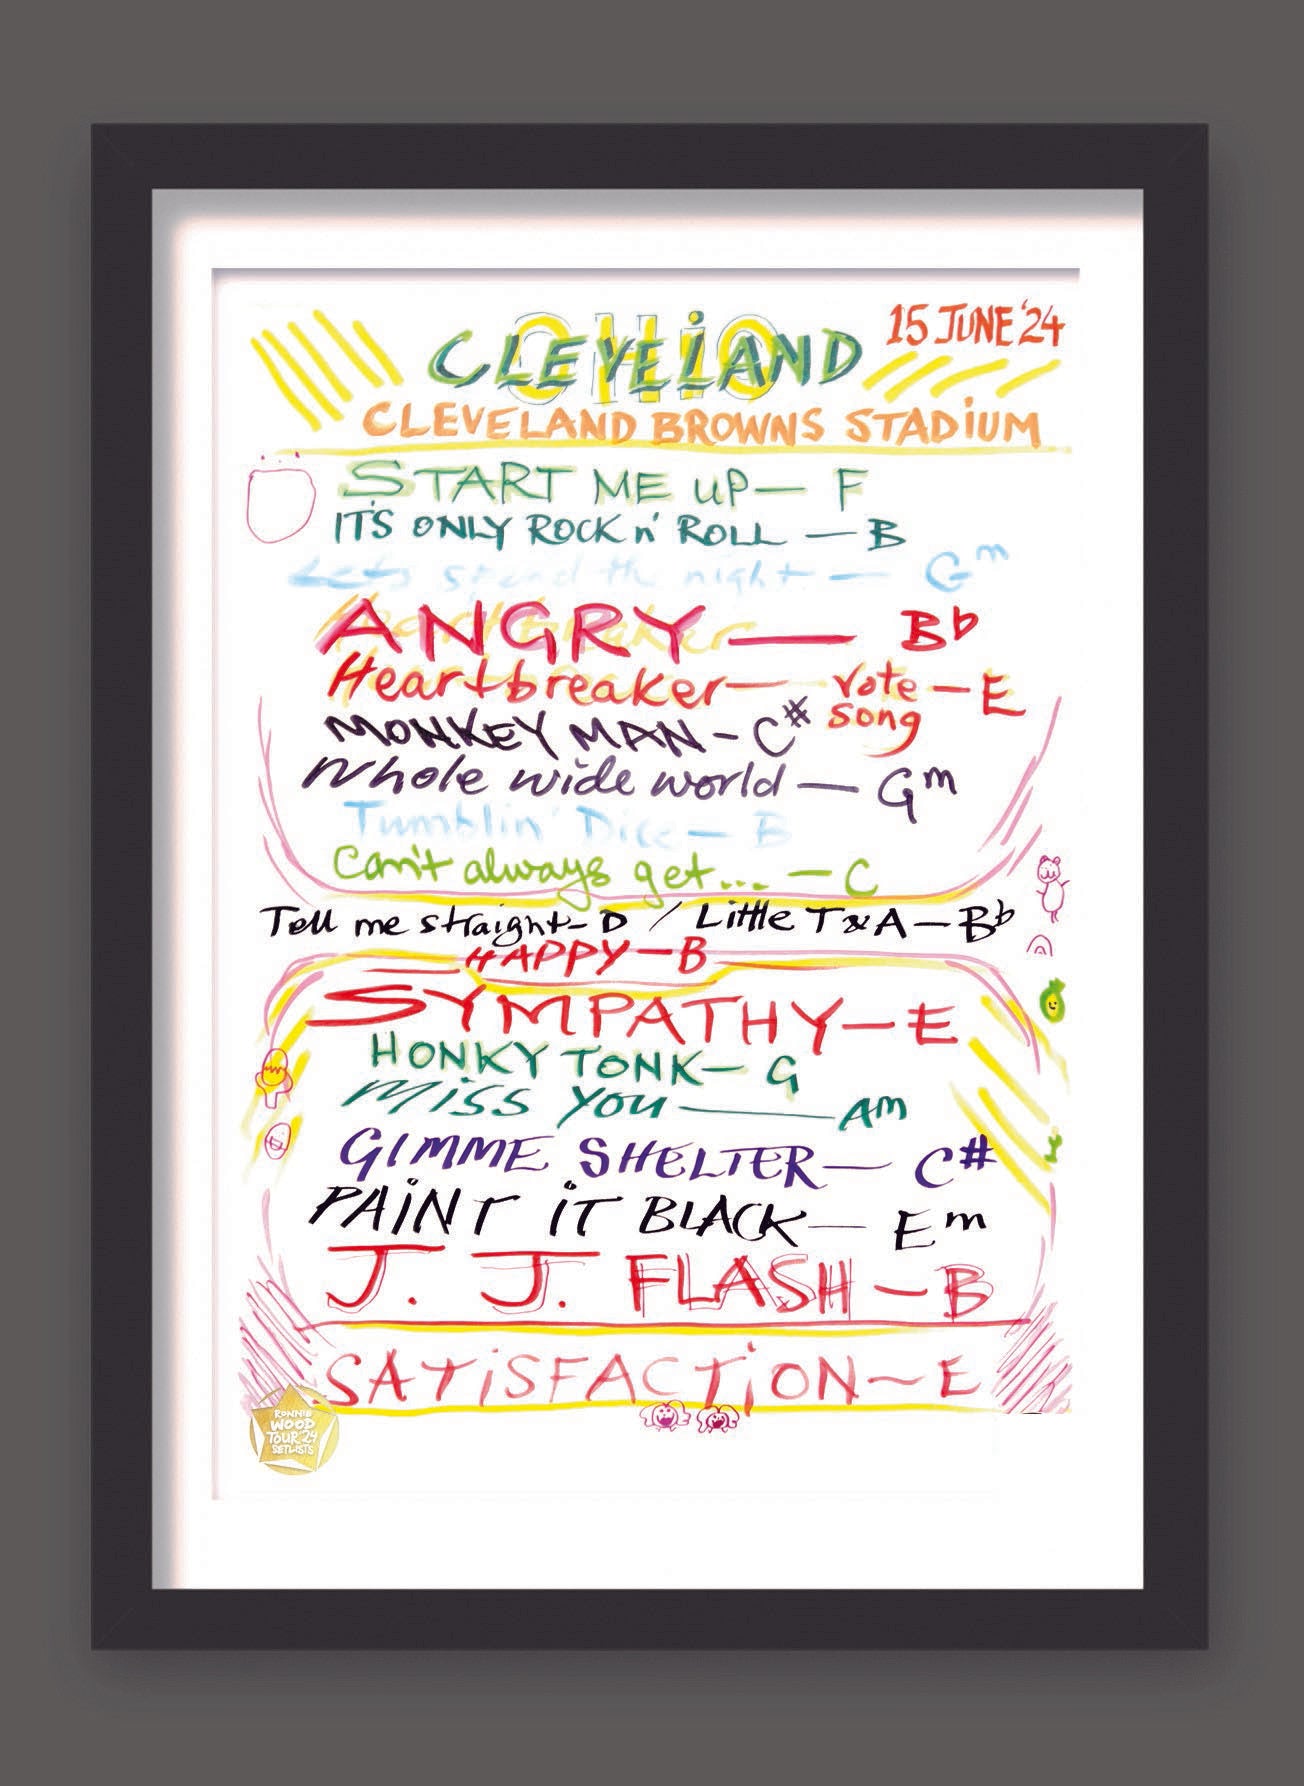 OHIO
CLEVELAND
15 JUNE '24
CLEVELAND BROWNS STADIUM
START ME UP — F
IT'S ONLY ROCK n' ROLL — B
Lets spend the night — Gm
Heartbreaker
ANGRY — Bb
Heartbreaker — vote song — E
MONKEY MAN - C#
Whole wide world — Gm
Tumblin' Dice — B
Can't always get... — C
Tell me straight - D / Little T&A — Bb
HAPPY — B
SYMPATHY — E
HONKY TONK — G
Miss You — Am
GIMME SHELTER — C#
PAINT IT BLACK — Em
J. J. FLASH — B
SATiSFACTiON ~ E
RONNIE
WOOD
TOUR '24
SETLISTS